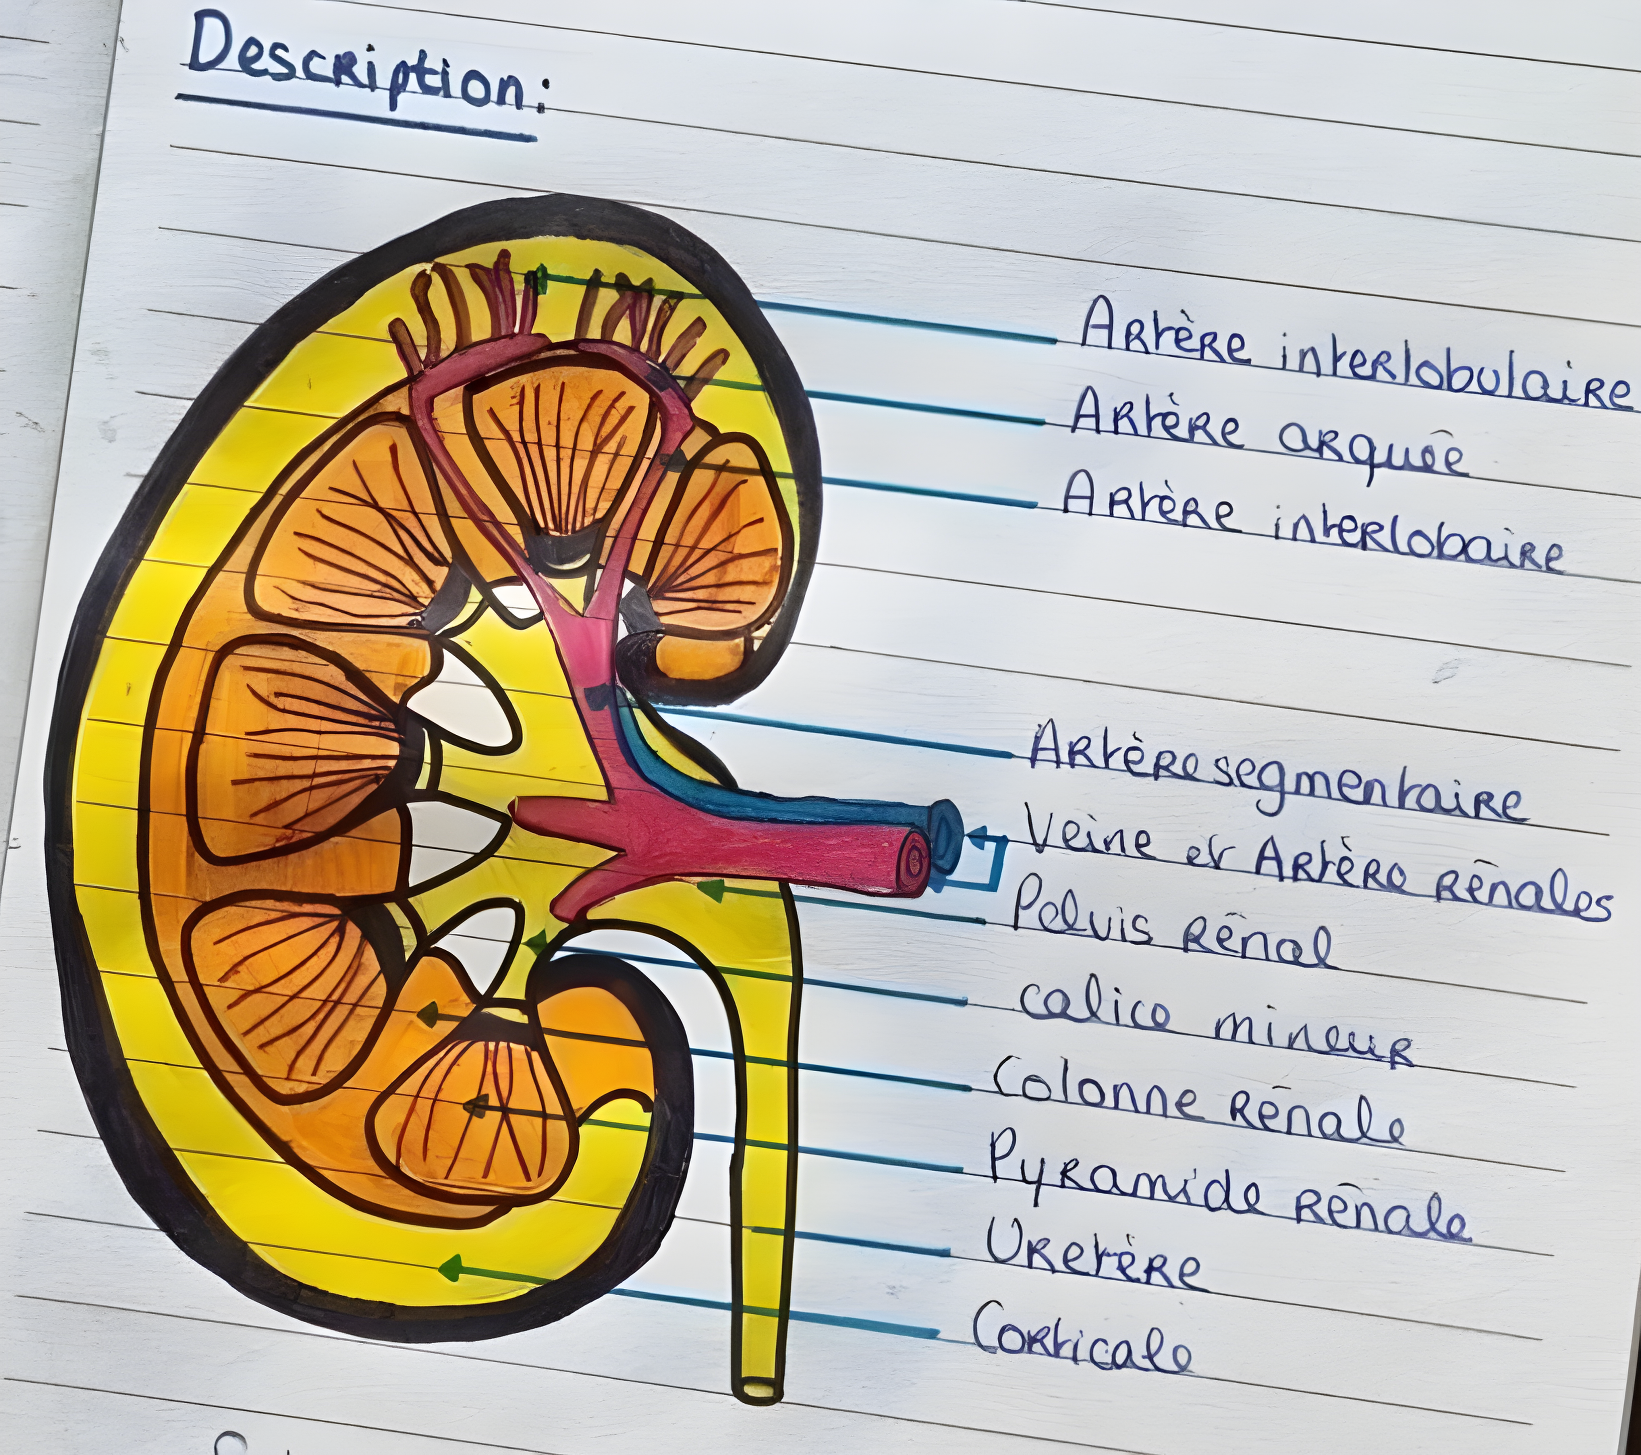 Description:
Artère interlobulaire
Artère arquée
Artère interlobaire
Artère segmentaire
Veine et Artère rénales
Pelvis rénal
calice mineur
Colonne rénale
Pyramide rénale
Uretère
Corticale